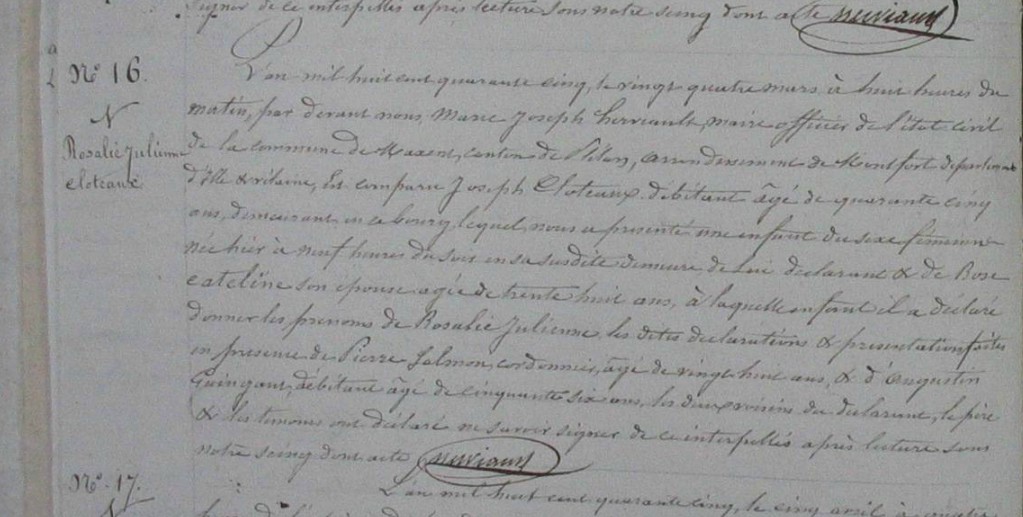 signer de ce interpellés après lecture sous notre seing dont acte
N° 16.
N
Rosalie Julienne
eloteaux
L'an mil huit cent quarante cinq, le vingt quatre mars à huit heures du
matin, par devant nous, Marie Joseph herviault, maire officier de l'état civil
de la commune de Maxent, canton de Plélan, arrondissement de Montfort département
d'ille & vilaine, Est comparu Joseph Eloteaux débitant âgé de quarante cinq
ans, demeurant en ce bourg lequel nous a présenté une enfant du sexe féminin
née hier à neuf heures du soir en sa susdite demeure, de lui déclarant & de Rose
cateline son épouse agée de trente huit ans, à laquelle enfant il a déclaré
donner les prenoms de Rosalie Julienne, les dites déclarations & présentation faites
en présence de Pierre Salmon, cordonnier, âgé de vingt huit ans, & d'Augustin
Guingant, débitant âgé de cinquante six ans, les deux voisins du déclarant, le père
& les témoins ont déclaré ne savoir signer de ce interpellés après lecture sous
notre seing dont acte
N° 17.
L'an mil huit cent quarante cinq, le cinq avril à quatre